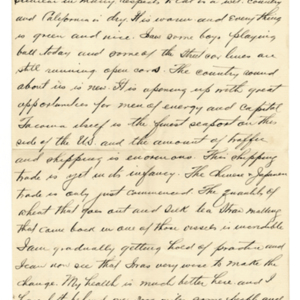 in many respects, as it is a wet country
and California is dry. It is warm and everything
is green and nice. I saw some boys playing
ball today and some of the Street car lines are
still running open cars. The country round
about is new. It is opening up with great
opportunities for men of energy and Capital
Tacoma itself is the finest seaport on this
side of the US and the amount of traffic
and shipping is enormous. This shipping
trade is yet in its infancy. The Chinese & Japanese
trade is only just commenced. The quantity of
wheat that goes out and Silk tea Straw matting
that come back in one of those vessels is incredible
I am gradually getting hold of practice and
I can now see that I was very wise to make the
change. My health is much better here, and I